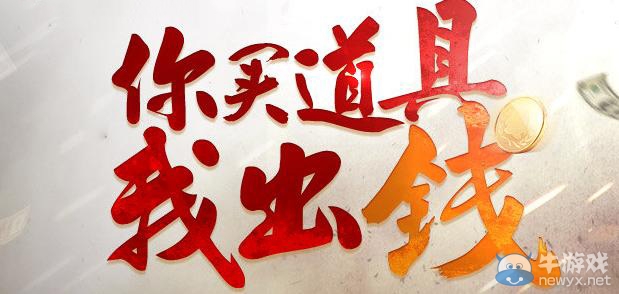 你买道具
我出錢
牛游戏
newyx.net